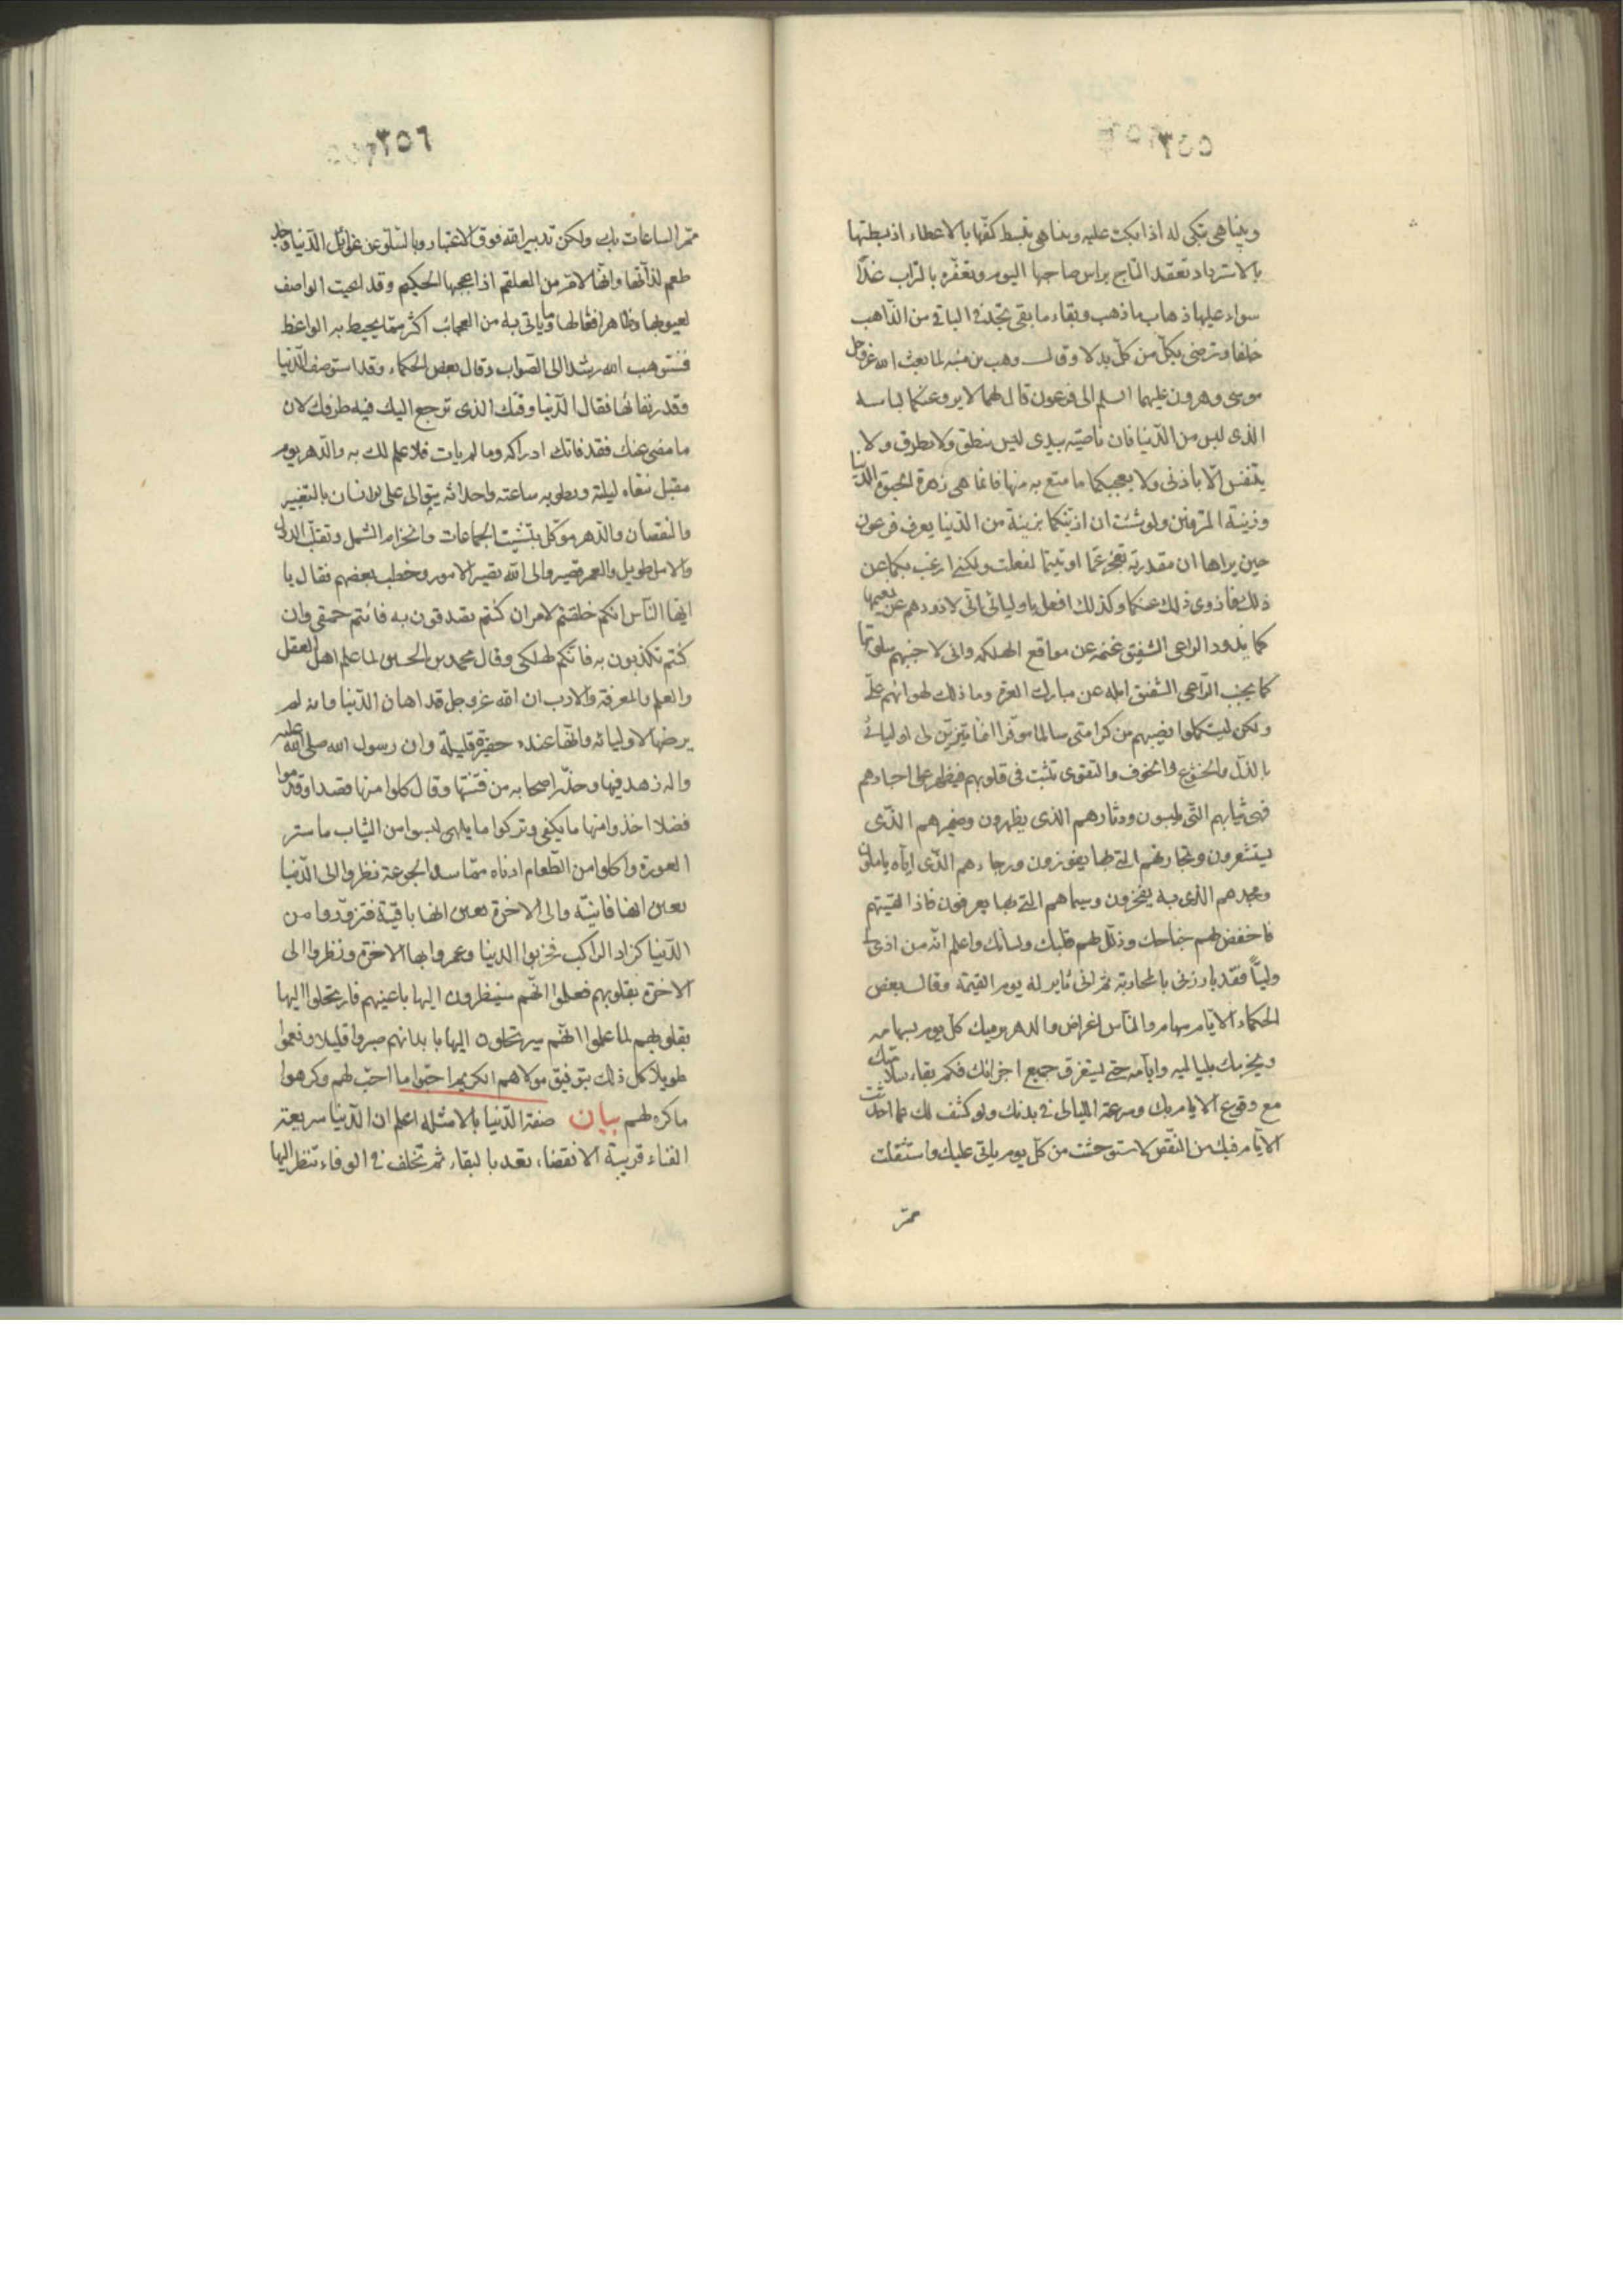 ٣٥٥
وبيناهى تبكى له اذا بكت عليه وبيناهى تبسط كفّها بالاعطاء اذ بسطتها
بالاسترداد تعقد التاج براس صاحبها اليوم وتعفّره بالتراب غدًا
سواء عليها ذهاب ما ذهب وبقاء ما بقى تجد فى الباقى من الذّاهب
خلفا وترضى بكلّ من كلّ بدلا وقال وهب بن منبّه لما بعث الله عزّ وجل
موسى وهرون عليهما السلم الى فرعون قال لهما لا يروعنكما لباسه
الذى لبس من الدّنيا فان ناصيته بيدى ليس ينطق ولا يطرف ولا
يتنفس الّا باذنى ولا يعجبكما ما متع به منها فانما هى زهرة الحيوة الدّنيا
وزينة المترفين ولو شئت ان ازيّنكما بزينة من الدّنيا يعرف فرعون
حين يراها ان مقدرته تعجز عمّا اوتيتما لفعلت ولكنى ارغب بكما عن
ذلك فازوى ذلك عنكما وكذلك افعل باوليائى انى لاذودهم عن نعيمها
كما يذود الراعى الشفيق غنمه عن مواقع الهلكه وانى لاجنبهم سلوتها
كما يجنب الرّاعى الشفيق ابله عن مبارك العرّه وما ذلك لهوانهم علىّ
ولكن ليستكملوا نصيبهم من كرامتى سالما موفّرا انما يتزيّن لى اوليائى
بالذّل والخشوع والخوف والتقوى تثبت فى قلوبهم فيظهر على اجسادهم
فهى ثيابهم التّى يلبسون ودثارهم الذى يظهرون وضميرهم الذّى
يستشعرون ونجاتهم التى بها يفوزون ورجاءهم الذّى ايّاه ياملون
ومجدهم الذى به يفخرون وسيماهم التى بها يعرفون فاذا لقيتهم
فاخفض لهم جناحك وذلّل لهم قلبك ولسانك واعلم انّه من اذى لى
وليًّا فقد بارزنى بالمحاربة ثم انى ثاير له يوم القيمة وقال بعض
الحكماء الايّام سهام والنّاس اغراض والدهر يرميك كل يوم بسهامه
ويخرمك بلياليه وايّامه حتى يستغرق جميع اجزائك فكم بقاء سلامتك
مع وقوع الايام بك وسرعة الليالى فى بدنك ولو كشف لك عما احدثت
الايّام فيك من النّقص لاستوحشت من كلّ يوم ياتى عليك واستثقلت
ممرّ
٣٥٦
ممرّ الساعات بك ولكن تدبير الله فوق الاعتبار وبالسّلو عن غوائل الدّنيا وجد
طعم لذّاتها وانّها لامرّ من العلقم اذا عجمها الحكيم وقد اعيت الواصف
لعيوبها بظاهر افعالها وما ياتى به من العجائب اكثر ممّا يحيط به الواعظ
فنستوهب الله رشدا الى الصّواب وقال بعض الحكماء وقد استوصف الدّنيا
وقدر بقائها فقال الدّنيا وقتك الذى ترجع اليك فيه طرفك لان
ما مضى عنك فقد فاتك ادراكه وما لم يات فلا علم لك به والدّهر يوم
مقبل تنعاه ليلته وتطويه ساعته واحداثه يتوالى على الانسان بالتغيير
والنقصان والدّهر موكّل بتشتيت الجماعات وانخرام الشمل وتنقل الدول
والامل طويل والعمر قصير والى الله تصير الامور وخطب بعضهم فقال يا
ايّها النّاس انكم خلقتم لامر ان كنتم تصدقون به فانتم حمقى وان
كنتم تكذبون به فانّكم لهلكى وقال محمد بن الحسين لما علم اهل العقل
والعلم والمعرفة والادب ان الله عزّ وجل قد اهان الدّنيا وانه لم
يرضها لاوليائه وانّها عنده حقيرة قليلة وان رسول الله صلى الله عليه
واله زهد فيها وحذّر اصحابه من فتنتها وقال كلوا منها قصدا وقدّموا
فضلا اخذوا منها ما يكفى وتركوا ما يلهى لبسوا من الثياب ما ستر
العورة واكلوا من الطّعام ادناه ممّا سد الجوعة نظروا الى الدّنيا
بعين انها فانيّة والى الاخرة بعين انها باقية فتزوّدوا من
الدّنيا كزاد الراكب فخربوا الدنيا وعمروا بها الاخرة ونظروا الى
الاخرة بقلوبهم فعلموا انّهم سينظرون اليها باعينهم فارتحلوا اليها
بقلوبهم لما علموا انّهم سيرتحلون اليها بابدانهم صبروا قليلا ونعموا
طويلا كل ذلك بتوفيق مولاهم الكريم احبّوا ما احبّ لهم وكرهوا
ما كره لهم بيان صفة الدّنيا بالامثله اعلم ان الدّنيا سريعة
الفناء قريبة الانقضاء تعد بالبقاء ثم تخلف فى الوفاء تنظر اليها